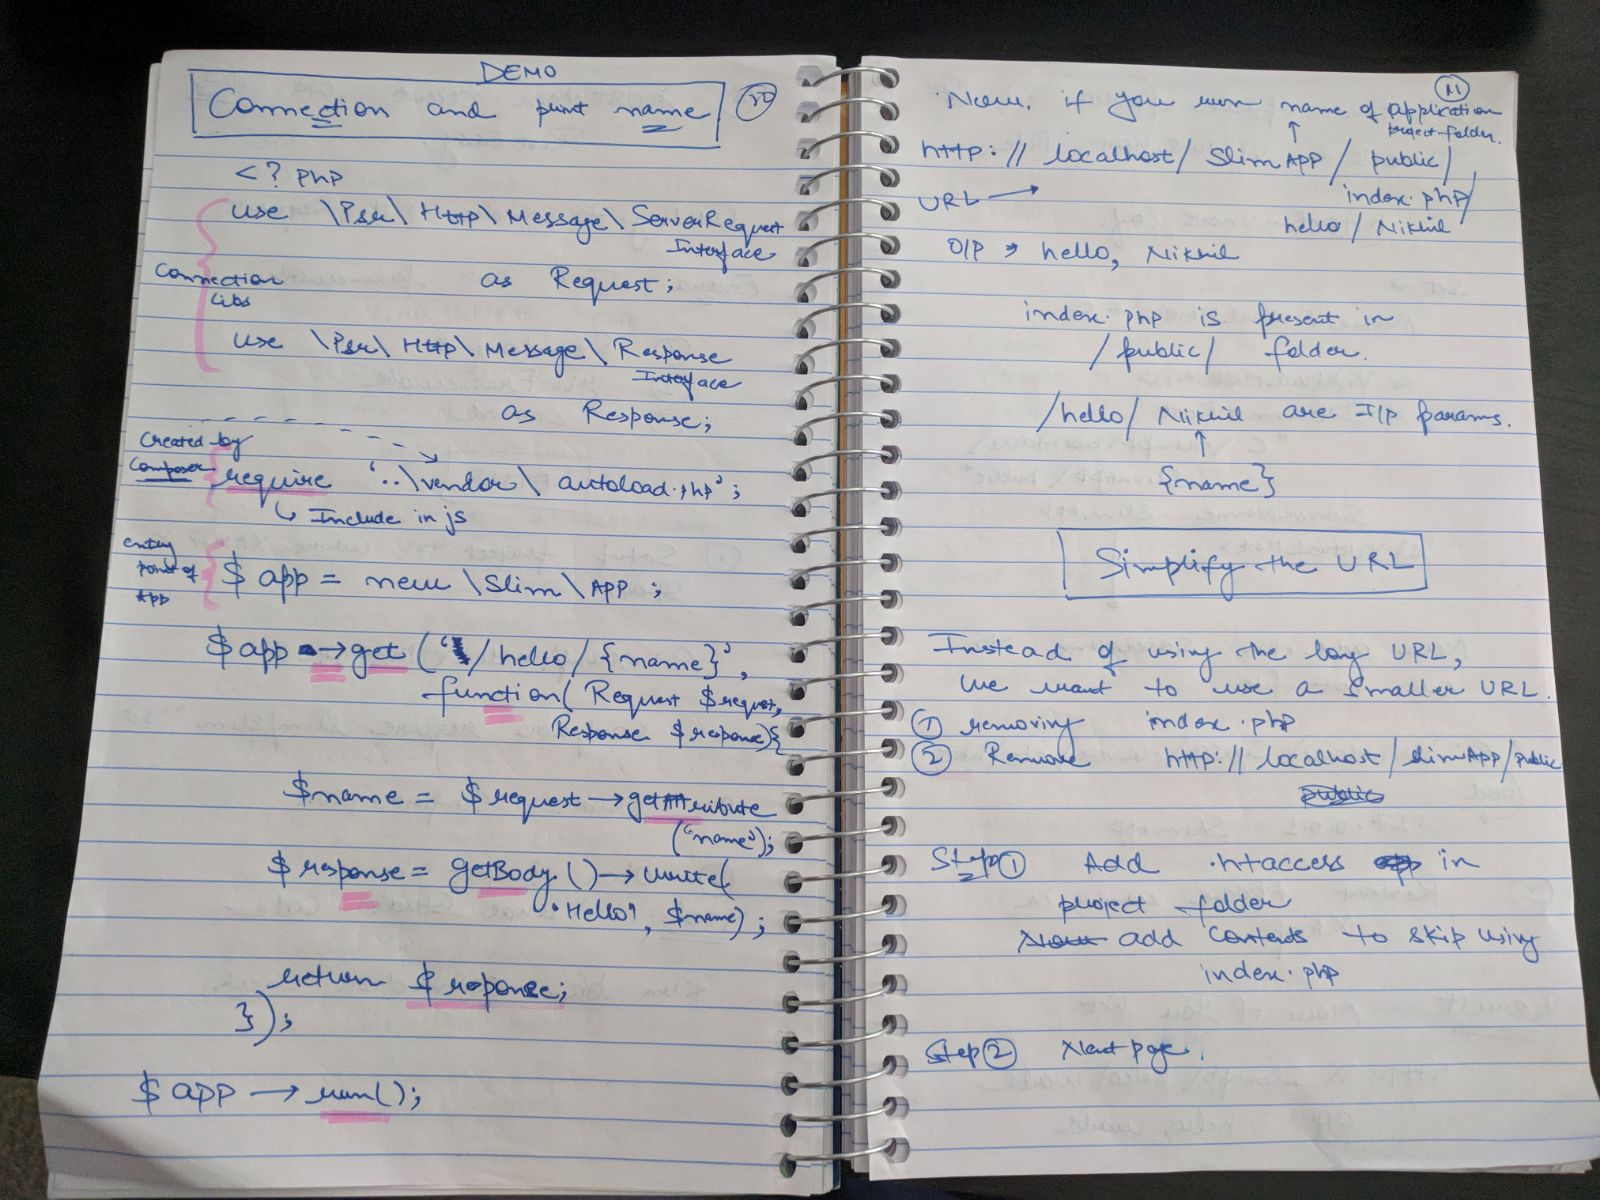 DEMO
Connection and print name
<? php
use \Psr\Http\Message\ServerRequest
Interface
Connection
Libs
as Request;
use \Psr\Http\Message\Response
Interface
as Response;
Created by
Composer
require '..\vendor\autoload.php';
↳ Include in js
entry
point of
App
$ app = new \Slim\APP ;
$ app → get ('/hello/{name}',
function( Request $request,
Response $response){
$name = $ request → getAttribute
("name");
$ response = getBody () → write(
'Hello', $name) ;
return $ reponse;
});
$ app → run();
11
Now, if you run name of application
project folder.
http: // localhost/ Slim APP / public/
index.php/
URL →
hello / Nikhil
O/P → hello, Nikhil
index.php is present in
/public/ folder.
/hello/ Nikhil are I/p params.
↑
{name}
Simplify the URL
Instead of using the long URL,
we want to use a smaller URL.
① removing index.php
② Remove http: // localhost/slimApp/public
public
Step ① Add .htaccess in
project folder
Now add contents to skip using
index.php
Step ② Next page.